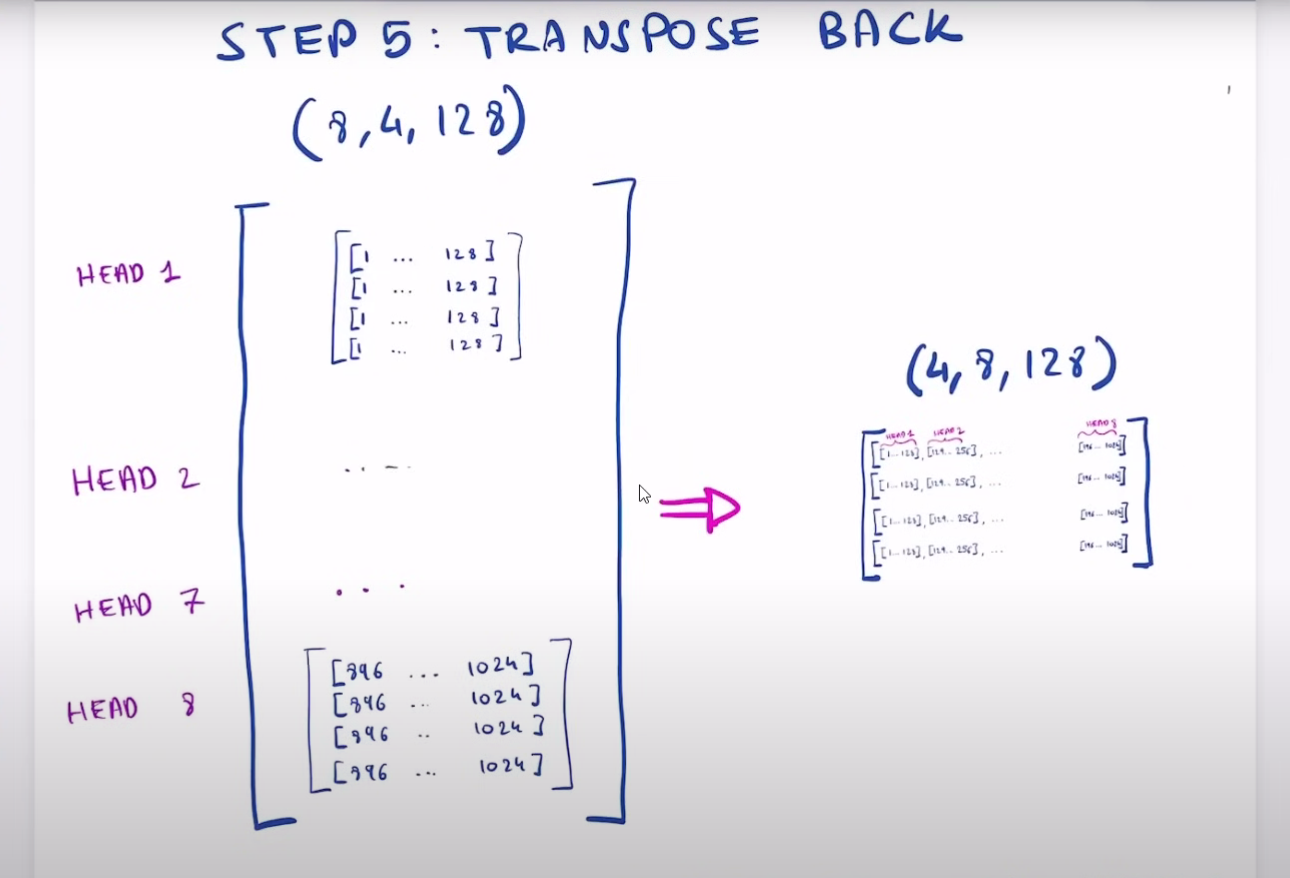 STEP 5: TRANSPOSE BACK
(8, 4, 128)
HEAD 1
[[1 ... 128]
[1 ... 128]
[1 ... 128]
[1 ... 128]]
HEAD 2
.. - -.
HEAD 7
. . .
HEAD 8
[[896 ... 1024]
[896 ... 1024]
[896 .. 1024]
[896 ... 1024]]
(4, 8, 128)
HEAD 1 HEAD 2 HEAD 8
[[[1...128], [129.. 256], ... [896 ... 1024]]
[[1...128], [129.. 256], ... [896 ... 1024]]
[[1...128], [129.. 256], ... [896 ... 1024]]
[[1...128], [129.. 256], ... [896 ... 1024]]]